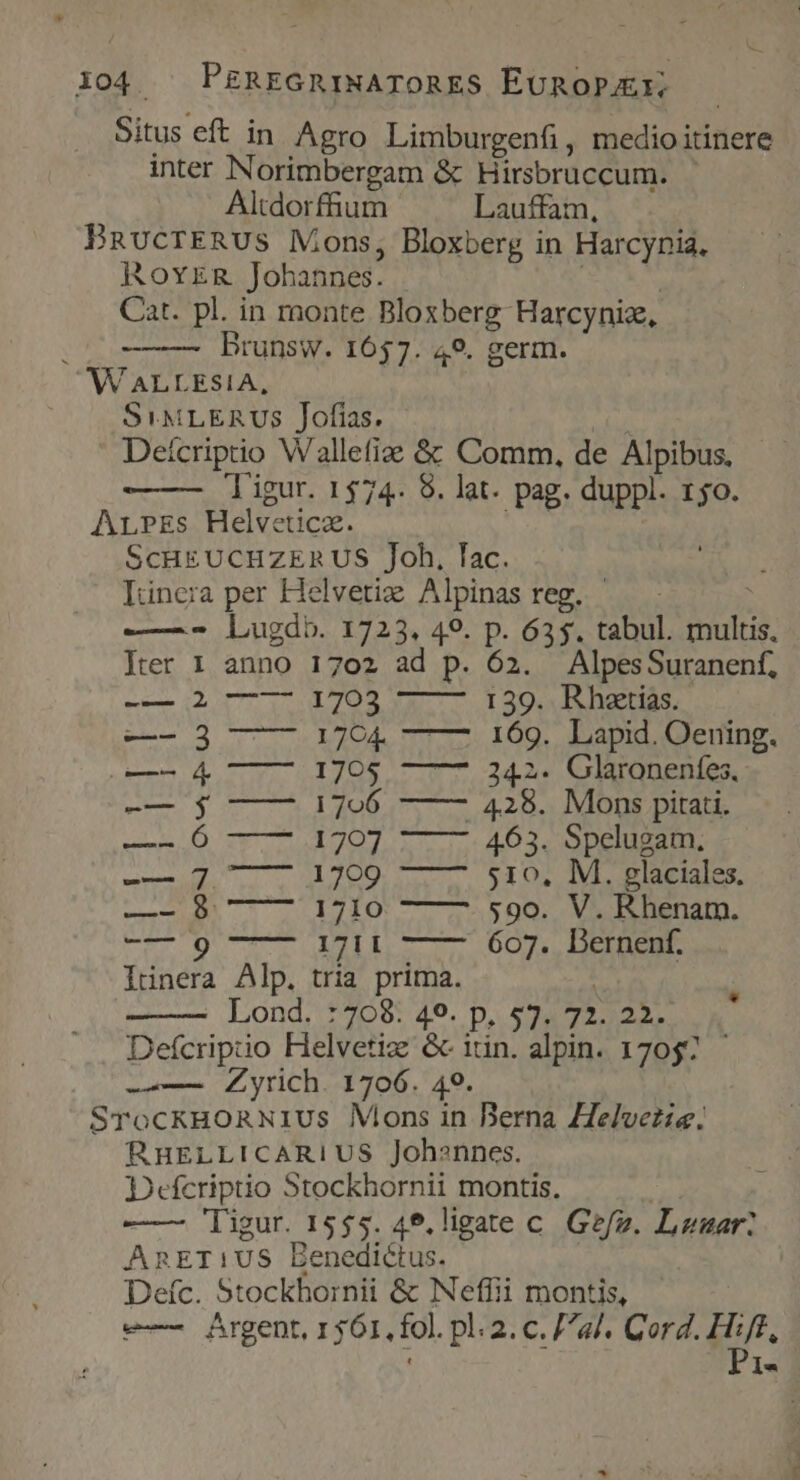 104 PEREGRINATORES EUROPÆI,
Situs eſt in Agro Limburgenſi, medio itinere
inter Norimbergam & Hirsbruccum.
Altdorffium Lauffam,
BRUCTERUS Mons, Bloxberg in Harcynia.
ROYER Johannes.
Cat. pl. in monte Bloxberg Harcyniæ,
—— Brunsw. 1657. 4º. germ.
WALLESIA,
SIMLERUS Joſias.
Deſcriptio Walleſiæ & Comm, de Alpibus,
—— Tigur. 1574. 8. lat. pag. duppl. 150.
ALPES Helveticæ.
SCHEUCHZERUS Joh, Iac.
Itinera per Helvetiæ Alpinas reg.
—— Lugdb. 1723, 4º. p. 635. tabul. multis.
Iter 1 anno 1702 ad p. 62. Alpes Suranenſ,
—— 2 —— 1703 —— 139. Rhætias.
—— 3 —— 1704 —— 169. Lapid. Oening.
—— 4 —— 1705 —— 342. Glaronenſes,
—— 5 —— 1706 —— 428. Mons pitati.
—— 6 —— 1707 —— 463. Spelugam,
—— 7 —— 1709 —— 510, M. glaciales,
—— 8 —— 1710 —— 590. V. Rhenam.
—— 9 —— 1711 —— 607. Bernenſ.
Itinera Alp. tria prima.
—— Lond. 1708. 4º. p, 57. 72. 22.
Deſcriptio Helvetiæ & itin. alpin. 1705.
—— Zyrich. 1706. 4º.
STOCKHORNIUS Mons in Berna Helvetiæ.
RHELLICARIUS Johannes.
Deſcriptio Stockhornii montis.
—— Tigur. 1555. 4º, ligate c Geſn. Lunar.
ARETIUS Benedictus.
Deſc. Stockhornii & Neſſii montis,
—— Argent, 1561, fol. pl. 2. c. Val. Cord. Hiſt,
Pi-